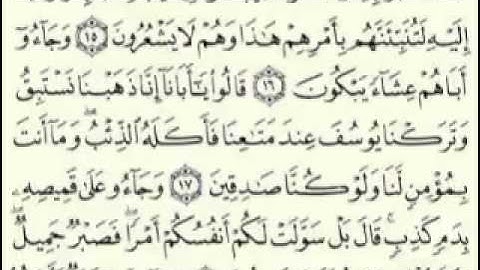 إِلَيْهِ لَتُنَبِّئَنَّهُم بِأَمْرِهِمْ هَٰذَا وَهُمْ لَا يَشْعُرُونَ ١٥ وَجَآءُوٓ
أَبَاهُمْ عِشَآءً يَبْكُونَ ١٦ قَالُوا۟ يَٰٓأَبَانَآ إِنَّا ذَهَبْنَا نَسْتَبِقُ
وَتَرَكْنَا يُوسُفَ عِندَ مَتَٰعِنَا فَأَكَلَهُ ٱلذِّئْبُ ۖ وَمَآ أَنتَ
بِمُؤْمِنٍ لَّنَا وَلَوْ كُنَّا صَٰدِقِينَ ١٧ وَجَآءُو عَلَىٰ قَمِيصِهِۦ
بِدَمٍ كَذِبٍ ۚ قَالَ بَلْ سَوَّلَتْ لَكُمْ أَنفُسُكُمْ أَمْرًا ۖ فَصَبْرٌ جَمِيلٌ ۖ